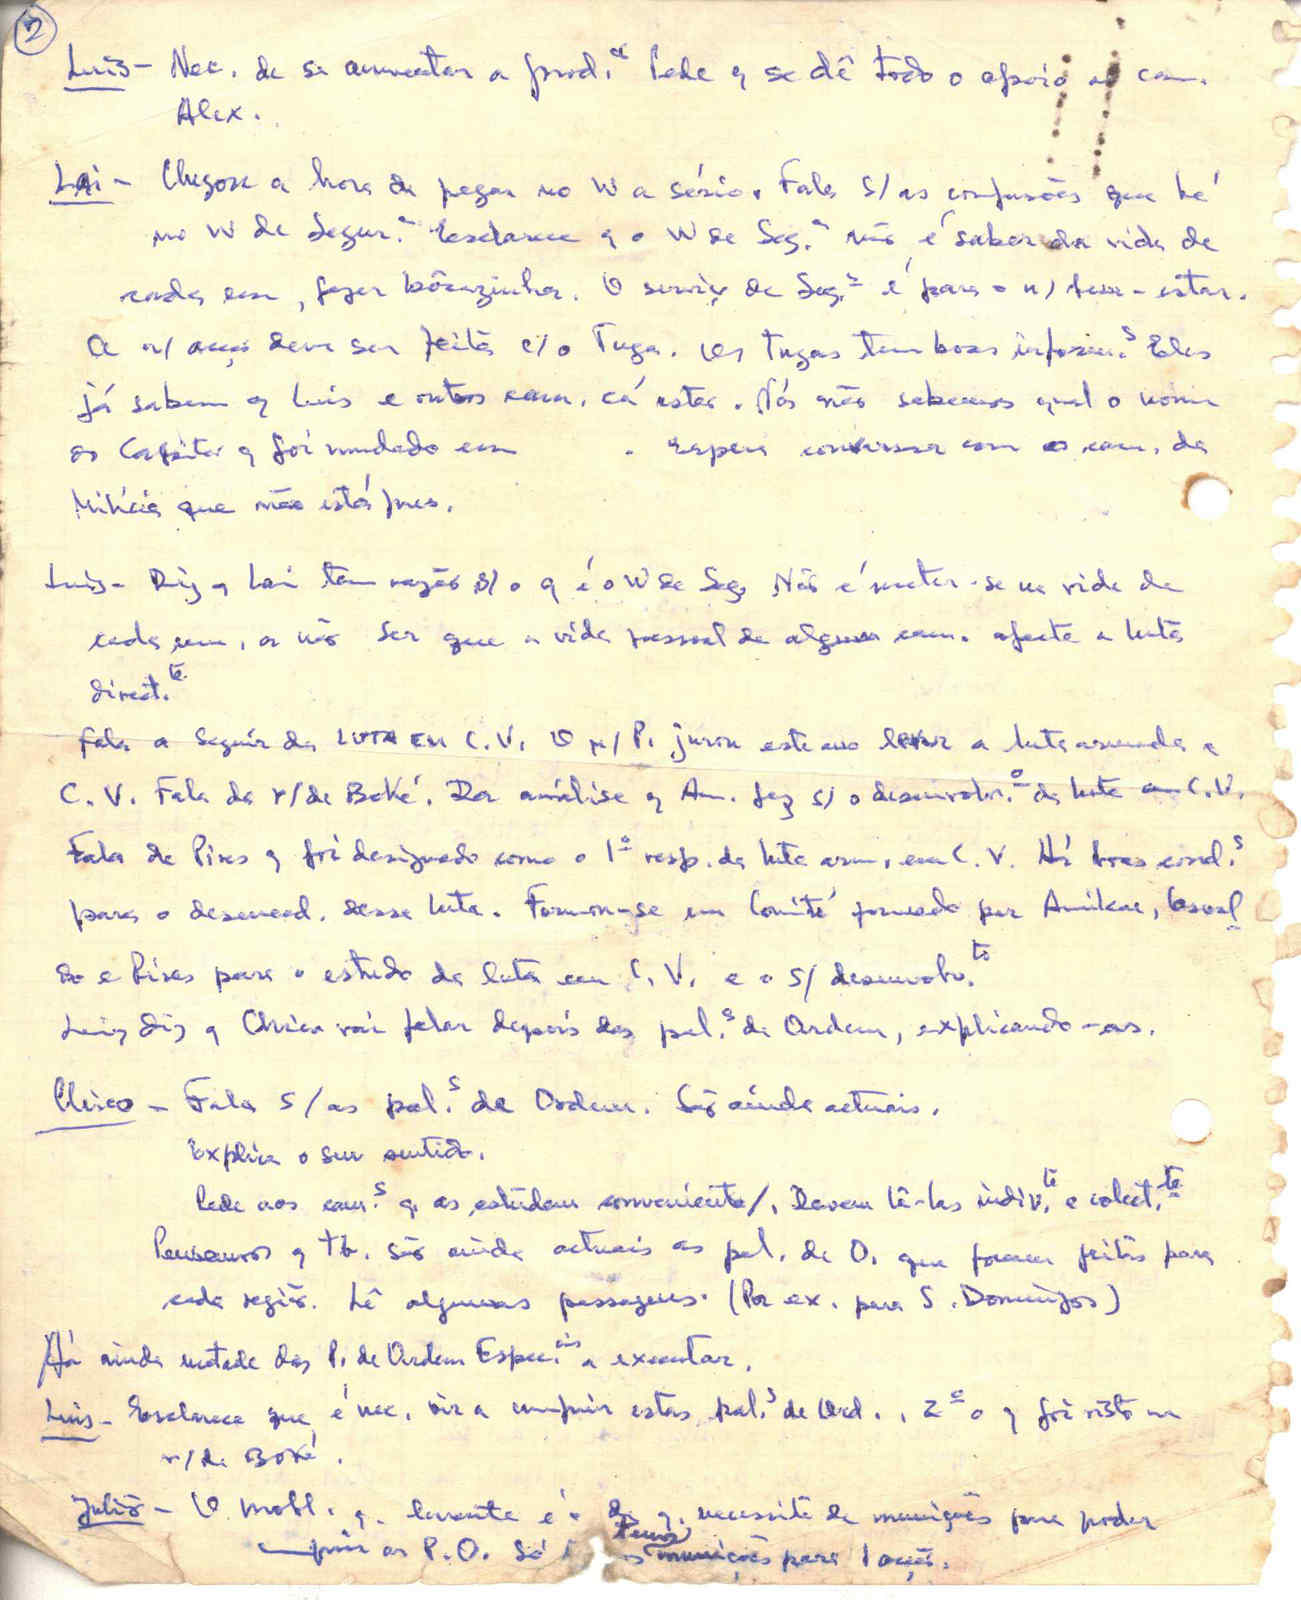 2
Luiz - Nec. de se aumentar a prod.ª Pede q se dê todo o apoio ao cam.
Alex.
Lai - Chegou a hora de pegar no W a sério. Fala s/ as confusões que há
no W de Segur.ª Esclarece q o W de Seg.ª não é saber da vida de
cada um, fazer . O serviço de Seg.ª é para o n/ bem-estar.
A n/ acção deve ser feita c/ o Tuga. Os tugas tem boas inform.s Eles
já sabem q Luiz e outros cam. cá estão. Nós não sabemos qual o nome
do Capitão q foi mudado em . Espera conversar com os cam. da
Milícia que não está pres.
Luiz - Diz q Lai tem razão s/ o q é o W de Seg. Não é meter-se na vida de
cada um, a não ser que a vida pessoal de algum cam. afecte a luta
direct.te
Fala a seguir da LUTA EM C.V. O n/ P. jurou este ano levar a luta armada a
C.V. Fala da r/ de Boké. Da análise q Am. fez s/ o desenvolv.o da luta em C.V.
Fala de Pires q foi designado como o 1º resp. da luta arm. em C.V. Há boas cond.s
para o desencad. dessa luta. Formou-se um Comité formado por Amílcar,
do e Pires para o estudo da luta em C.V. e o s/ desenvolv.to
Luiz diz q Chico vai falar depois das pal.s de Ordem, explicando-as.
Chico - Fala s/ as pal.s de Ordem. São ainda actuais.
Explica o seu sentido.
Pede aos cam.s q as estudem conveniente/. Devem lê-las indiv.te e colect.te
Pensamos q tb. são ainda actuais as pal. de O. que foram feitas para
cada região. Lê algumas passagens. (Por ex. para S. Domingos)
Há ainda metade das P. de Ordem Espec.ais a executar.
Luis - Esclarece que é nec. vir a cumprir estas pal.s de Ord. . 2º o q foi visto na
r/ de Boké.
Julião - O probl. q. levanta é o de q. necessita de munições para poder
cumprir as P.O. Só temos munições para 1 acção.